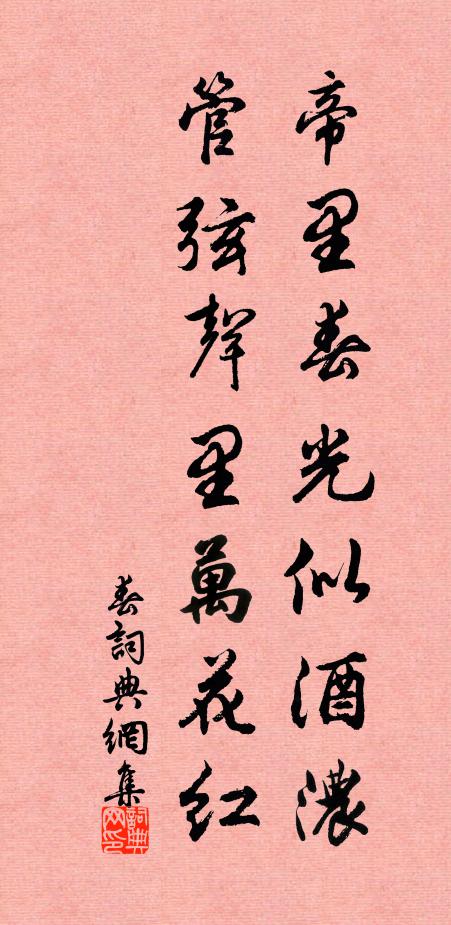 帝里春光似酒濃
管弦聲里萬花紅
春詞典網集
詞典网印